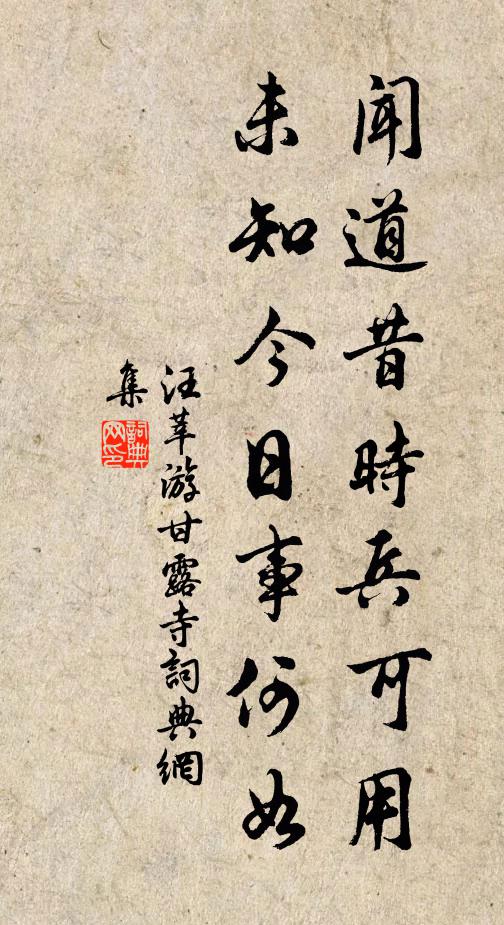 聞道昔時兵可用
未知今日事何如
汪莘游甘露寺詞典網
集
詞典網印